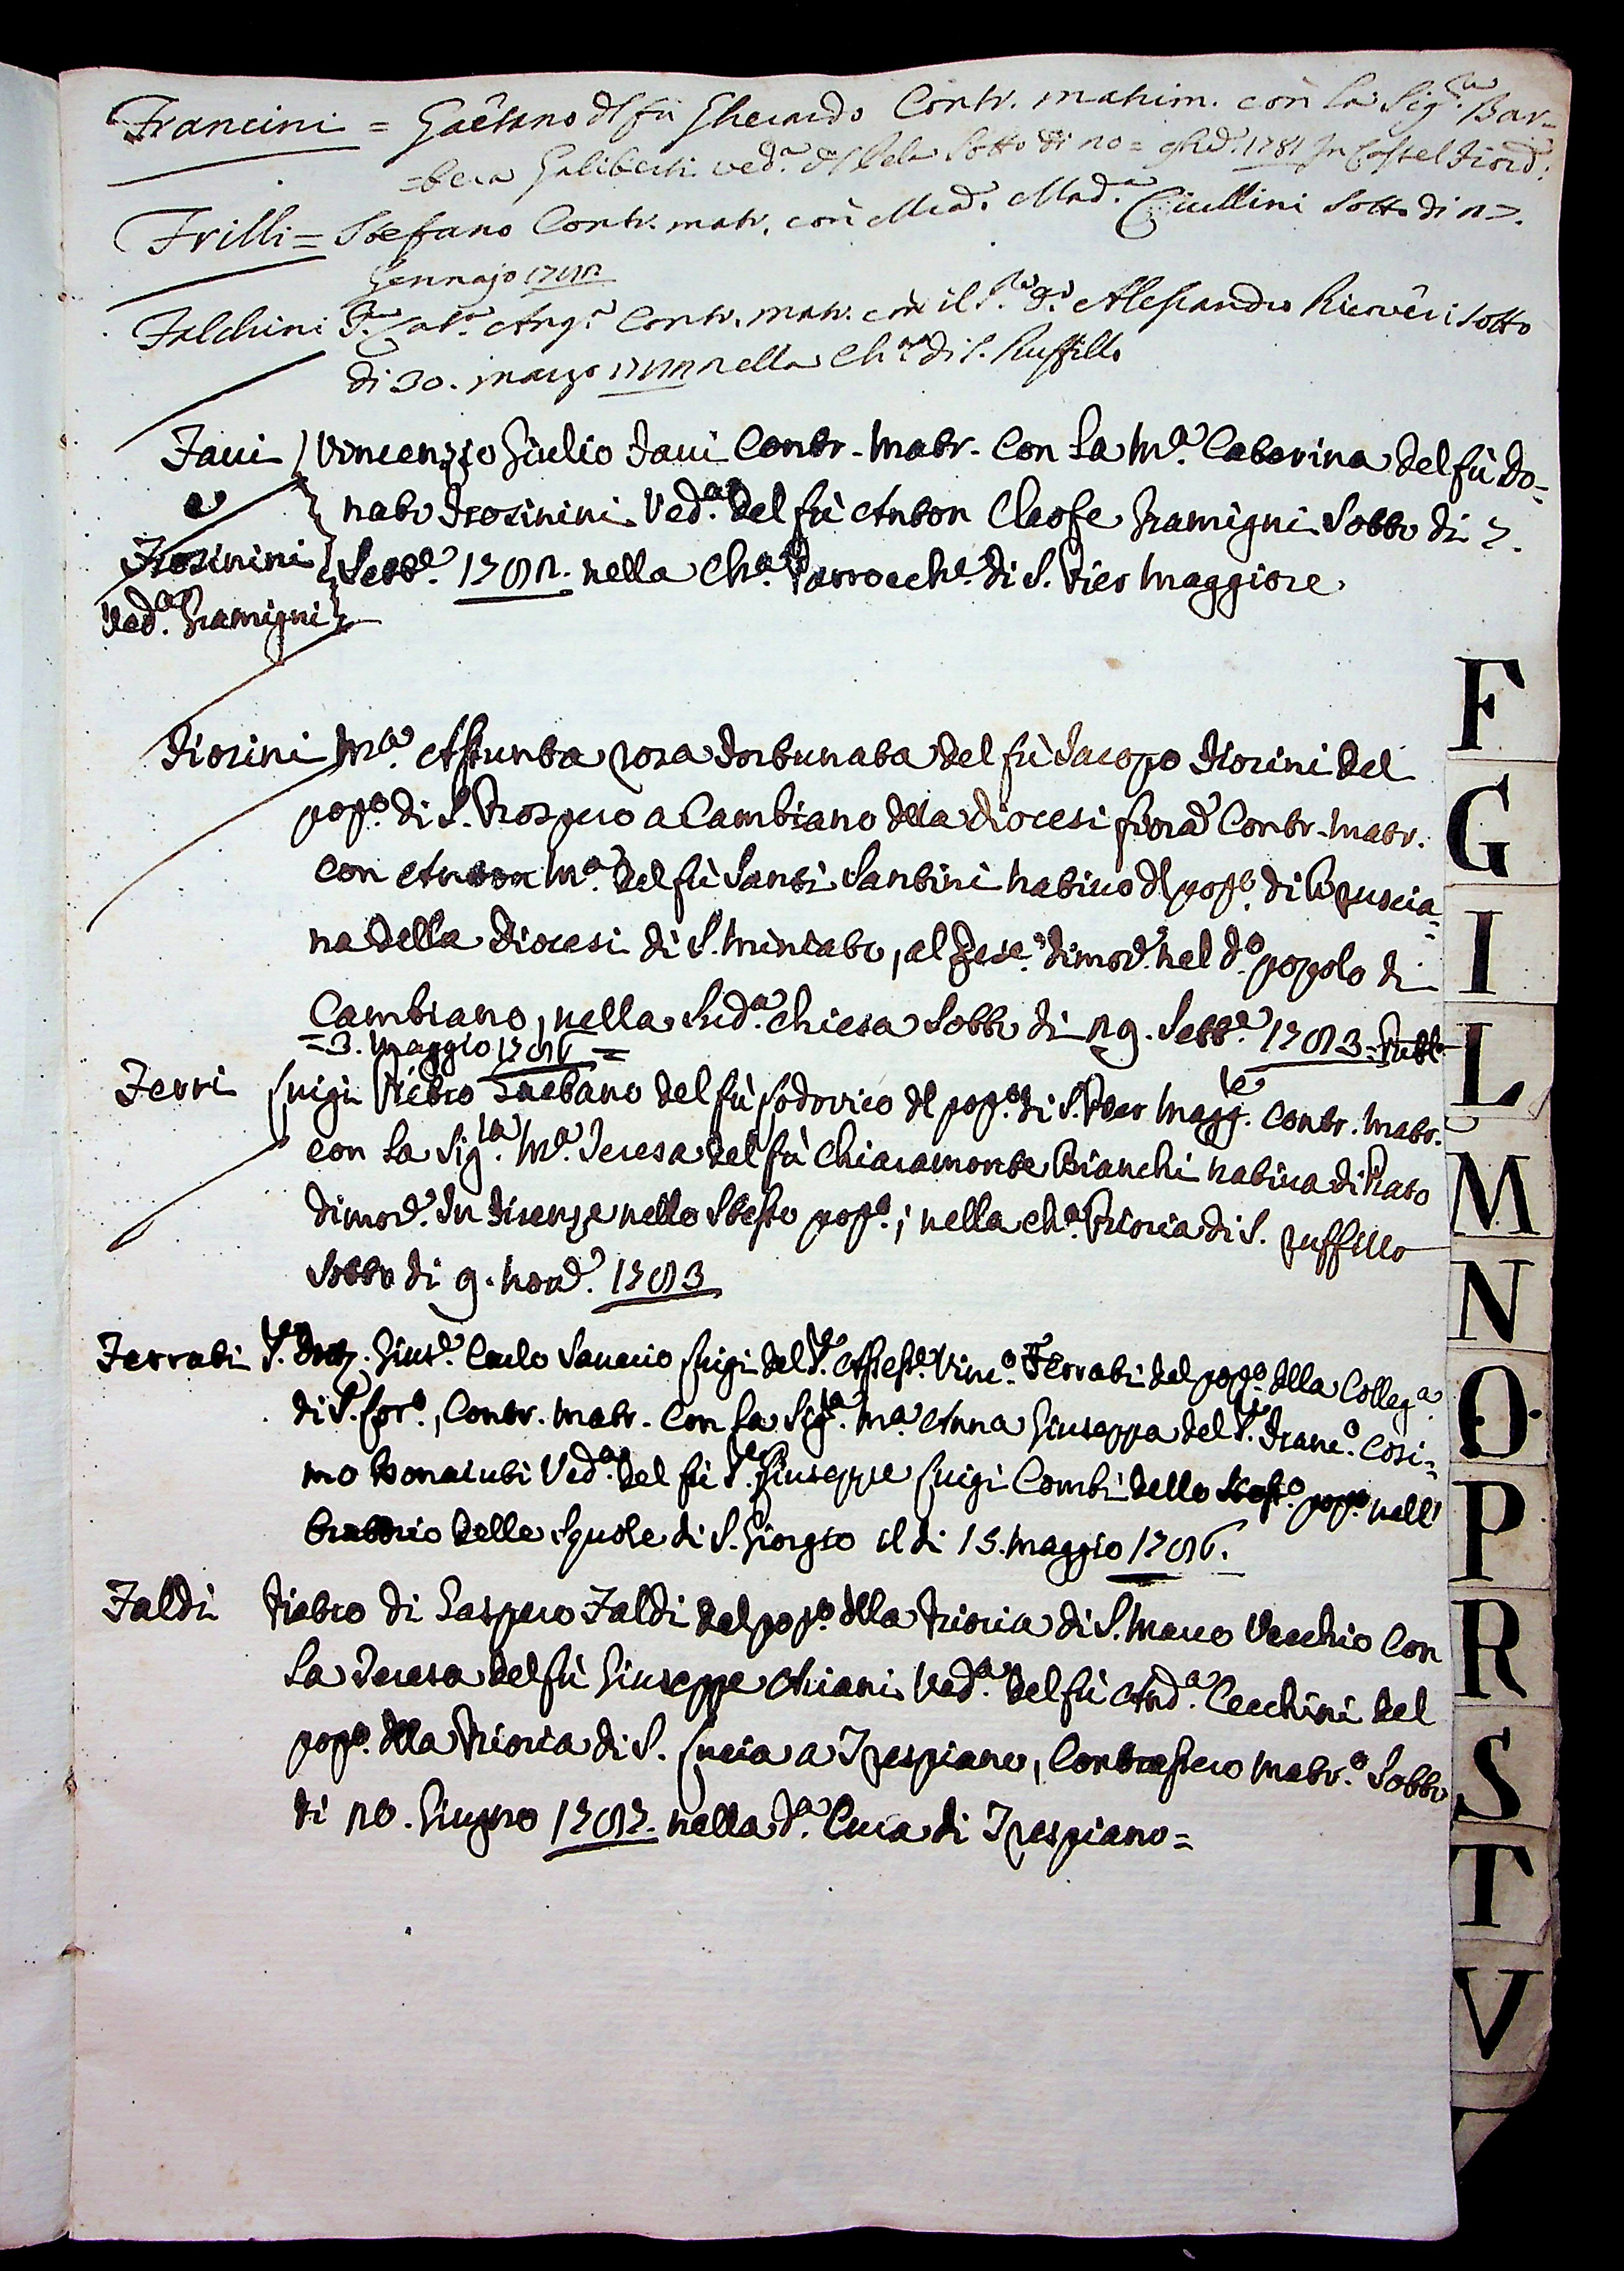 Francini = Gaetano del fù Gherardo Contr. matrim. con la Sig.ra Bar=
=bera Galiberti ved.a del Vela Sotto dì 20 = 9bre 1781 In Castel Fiord.
Frilli = Stefano Contr. matr. con Mad.a Ciullini Sotto dì 27.
Gennajo 1782
Falchini F. Cat.a Ang.a Contr. matr. con il S.r D.r Alessandro Ricoveri Sotto
di 30. marzo 1782 nella Ch.a di S. Ruffillo
Favi Vincenzio Giulio Favi Contr. Matr. Con La M.a Caterina del fù Do=
e nato Frosinini Ved.a del fù Anton Cleofe Gramigni Sotto di 7.
Frosinini Sett.e 1782. nella Ch.a Parroch.e di S. Pier Maggiore.
Ved.a Gramigni
Fiorini M.a Assunta Rosa Fortunata del fù Jacopo Fiorini del
pop.o di S. Prospero a Cambiano della diocesi fior.a Contr. Matr.
con Anton M.a del fù Santi Santini nativo del pop.o di Cusia=
na della Diocesi di S. Miniato, al pres.e dimor.e nel d.o popolo di
Cambiano, nella Sud.a chiesa Sotto di 29. Sett.e 1783.
= 3. Maggio 1786 =
Ferri Luigi Pietro Gaetano del fù Lodovico del pop.o di S. Pier Magg.re Contr. Matr.
con La Sig.ra M.a Teresa del fù Chiaramonte Bianchi nativa di Prato
dimor.e In Firenze nello Stesso pop.o; nella ch.a Prioria di S. Ruffillo
Sotto di 9. Nov.e 1783
Ferrati S.r Dott. Gius.e Carlo Saverio Luigi del S.r Vinc.o Ferrati del pop.o della Colleg.a
di S. Lor.o, Contr. Matr. Con La Sig.ra M.a Anna Giuseppa del S.r Franc.o Cosi=
mo Bonaiuti Ved.a del fù S.r Giuseppe Luigi Combi dello Stess.o pop.o nell'
Oratorio delle Squole di S. Giorgio il di 15. Maggio 1786.
Faldi Pietro di Gaspero Faldi del pop.o della Prioria di S. Marco Vecchio Con
La Teresa del fù Giuseppe Ariani Ved.a del fù And.a Cecchini del
pop.o della Prioria di S. Lucia a Trespiano, Contrassero Matr.o Sotto
di 20. Giugno 1787. nella d.a Cura di Trespiano =
F
G
I
L
M
N
O
P
R
S
T
V